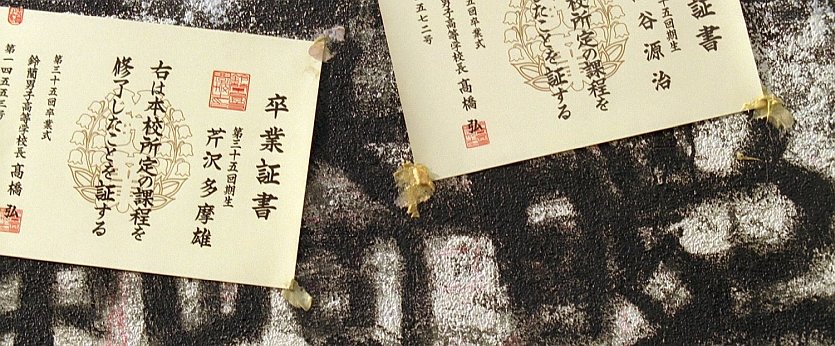 卒業証書
第三十五回期生
芹沢多摩雄
右は本校所定の課程を
修了したことを証する
第三十五回卒業式
鈴蘭男子高等学校長 髙橋 弘
第一四五五三号
証書
五回期生
谷源治
校所定の課程を
たことを証する
五回卒業式
男子高等学校長 髙橋 弘
五七二号